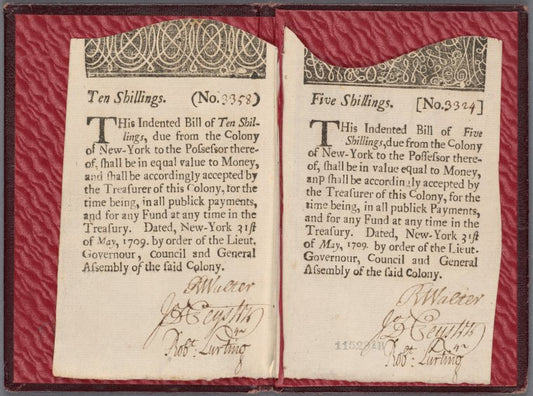 Ten Shillings. (No. 3358)
THis Indented Bill of Ten Shil-
lings, due from the Colony
of New-York to the Poſſeſſor there-
of, ſhall be in equal value to Money,
and ſhall be accordingly accepted by
the Treaſurer of this Colony, for the
time being, in all publick payments,
and for any Fund at any time in the
Treaſury. Dated, New-York 31ſt
of May, 1709. by order of the Lieut.
Governour, Council and General
Aſſembly of the ſaid Colony.
RWalter
Robt. Lurting
Five Shillings. [No. 3324]
THis Indented Bill of Five
Shillings, due from the Colony
of New-York to the Poſſeſſor there-
of, ſhall be in value equal to Money,
anp ſhall be accordingly accepted by
the Treaſurer of this Colony, for the
time being, in all publick Payments,
and for any Fund at any time in the
Treaſury. Dated, New-York 31ſt
of May, 1709. by order of the Lieut.
Governour, Council and General
Aſſembly of the ſaid Colony.
RWalter
Robt. Lurting